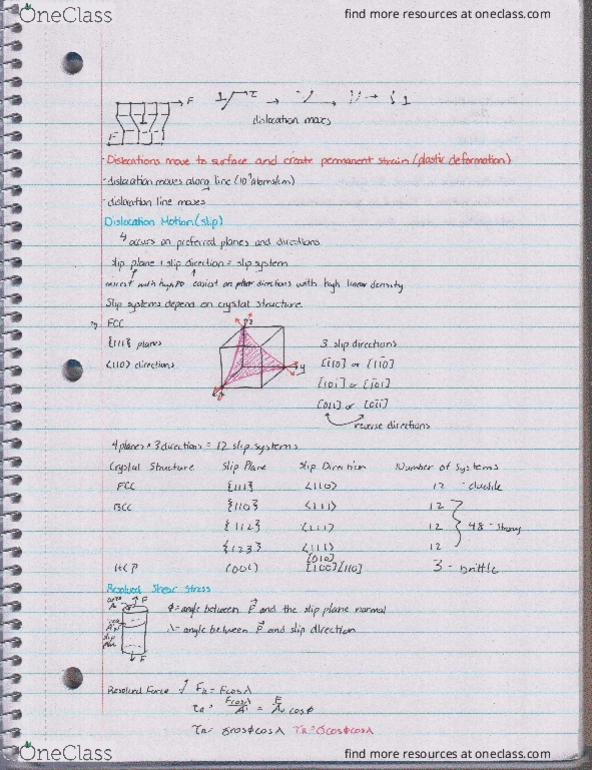 OneClass
find more resources at oneclass.com
F
⊥ τ → → →
dislocation moves
F
- Dislocations move to surface and create permanent strain (plastic deformation)
- dislocation moves along line
- dislocation line moves
Dislocation Motion (slip)
↳ occurs on preferred planes and directions
slip plane + slip direction = slip system
easiest on directions with high linear density
Slip systems depend on crystal structure.
FCC
{111} planes
<110> directions
z
y
x
3 slip directions
[1̄10] or [11̄0]
[101̄] or [1̄01]
[011̄] or [01̄1]
reverse directions
4 planes × 3 directions = 12 slip systems
Crystal Structure Slip Plane Slip Direction Number of Systems
FCC {111} <110> 12 - ductile
BCC {110} <111> 12
{112} <111> 12 48 - strong
{123} <111> 12
[010]
HCP (001) [100][110] 3 - brittle
Resolved Shear Stress
F
slip plane
F
φ = angle between F⃗ and the slip plane normal
λ = angle between F⃗ and slip direction
Resolved Force F_R = Fcosλ
τ_R = Fcosλ/A' = F/A cosφ
τ_R = σcosφcosλ τ_R = σcosφcosλ
OneClass
find more resources at oneclass.com